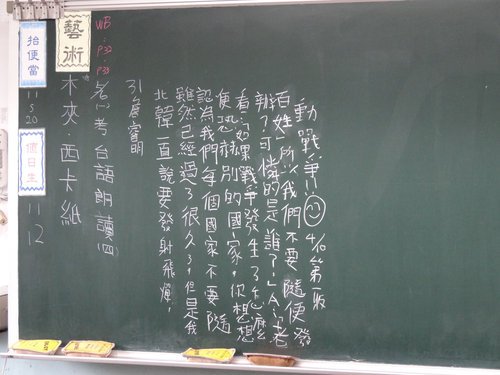 抬便當
11
5
20
值日生
11
12
藝術
木夾.西卡紙
WB:
P32
P33
考台語朗讀(四)
31詹睿明
北韓一直說要發射飛彈,
雖然已經過了很久了,但是我
認為我們每個國家不要隨
便恐嚇別的國家,你想想
看:如果戰爭發生了怎麼
辦?可憐的是誰?A:老
百姓,所以我們不要隨便發
動戰爭! 4/10第一版